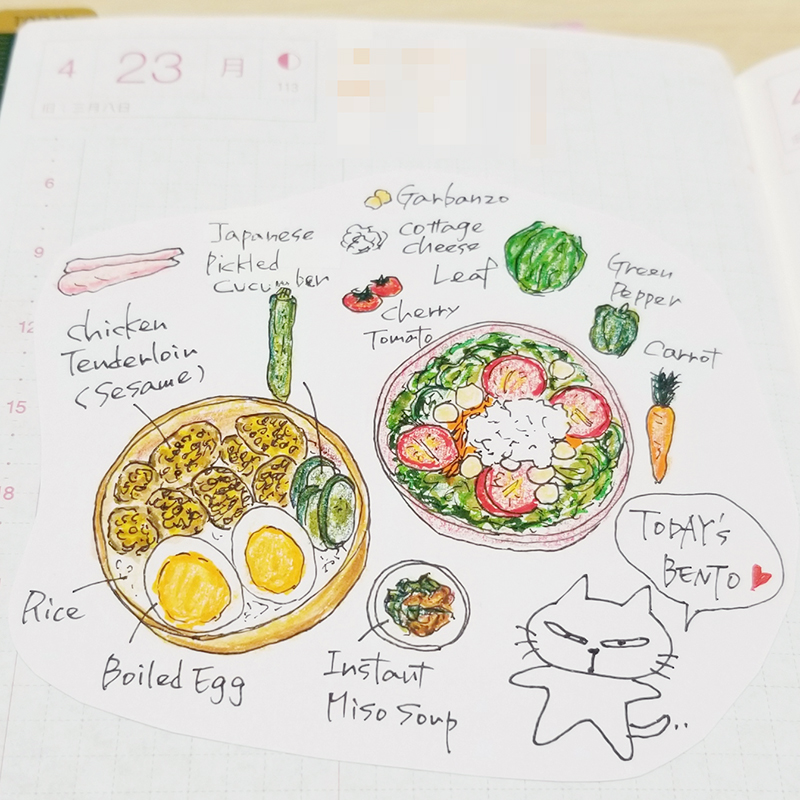 4 23 月
113
6
9
12
15
18
Garbanzo
cottage
cheese
Leaf
Japanese
Pickled
cucumber
Cherry
Tomato
Green
Pepper
Carrot
chicken
Tenderloin
(Sesame)
Rice
Boiled Egg
Instant
Miso Soup
TODAY's
BENTO